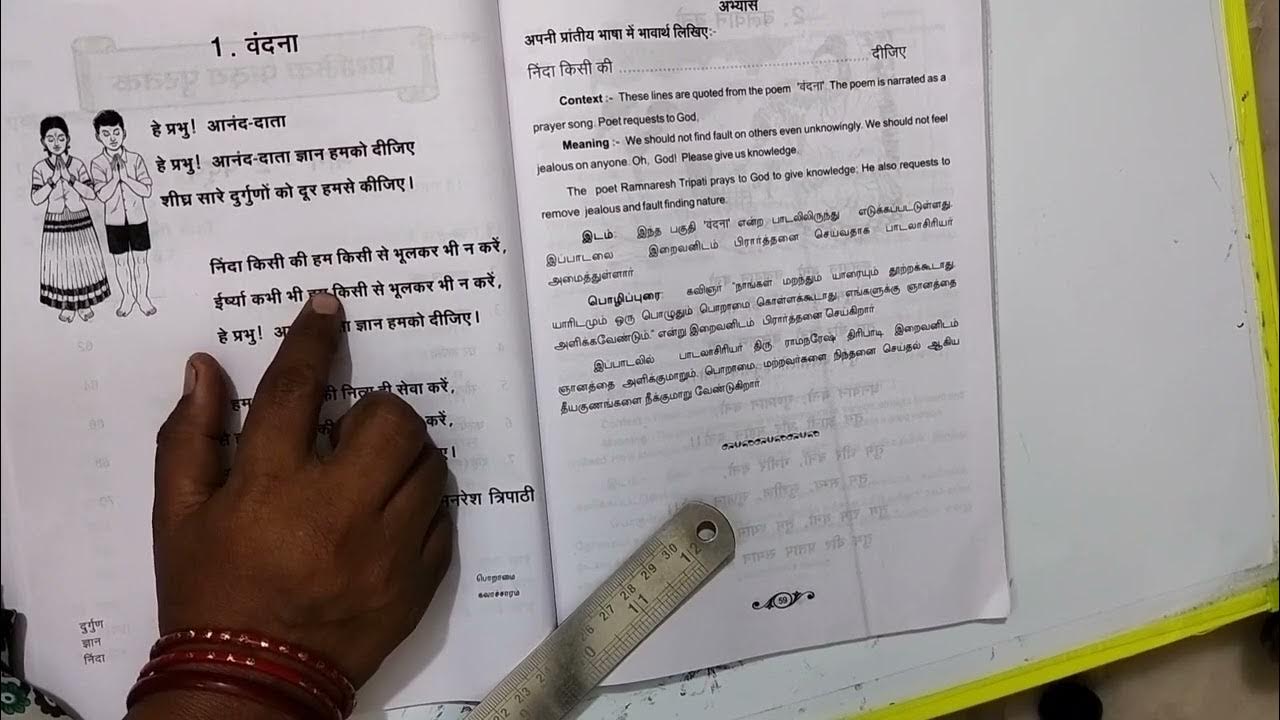 1. वंदना
हे प्रभु! आनंद-दाता
हे प्रभु! आनंद-दाता ज्ञान हमको दीजिए
शीघ्र सारे दुर्गुणों को दूर हमसे कीजिए।
निंदा किसी की हम किसी से भूलकर भी न करें,
ईर्ष्या कभी भी हम किसी से भूलकर भी न करें,
हे प्रभु! ज्ञान हमको दीजिए।
हम की नित्य ही सेवा करें,
करें,
नरेश त्रिपाठी
பொறாமை
கலாச்சாரம்
दुर्गुण
ज्ञान
निंदा
अभ्यास
अपनी प्रांतीय भाषा में भावार्थ लिखिए:-
निंदा किसी की ................................................ दीजिए
Context :- These lines are quoted from the poem 'वंदना'. The poem is narrated as a
prayer song. Poet requests to God,
Meaning :- We should not find fault on others even unknowingly. We should not feel
jealous on anyone. Oh, God! Please give us knowledge.
The poet Ramnaresh Tripati prays to God to give knowledge; He also requests to
remove jealous and fault finding nature.
இடம்: இந்த பகுதி 'वंदना' என்ற பாடலிலிருந்து எடுக்கப்பட்டுள்ளது.
இப்பாடலை இறைவனிடம் பிரார்த்தனை செய்வதாக பாடலாசிரியர்
அமைத்துள்ளார்
பொழிப்புரை: கவிஞர் "நாங்கள் மறந்தும் யாரையும் தூற்றக்கூடாது.
யாரிடமும் ஒரு பொழுதும் பொறாமை கொள்ளக்கூடாது. எங்களுக்கு ஞானத்தை
அளிக்கவேண்டும்." என்று இறைவனிடம் பிரார்த்தனை செய்கிறார்
இப்பாடலில் பாடலாசிரியர் திரு ராமநரேஷ் திரிபாடி இறைவனிடம்
ஞானத்தை அளிக்குமாறும், பொறாமை, மற்றவர்களை நிந்தனை செய்தல் ஆகிய
தீயகுணங்களை நீக்குமாறு வேண்டுகிறார்
59
30
29
28
27
12
11
23